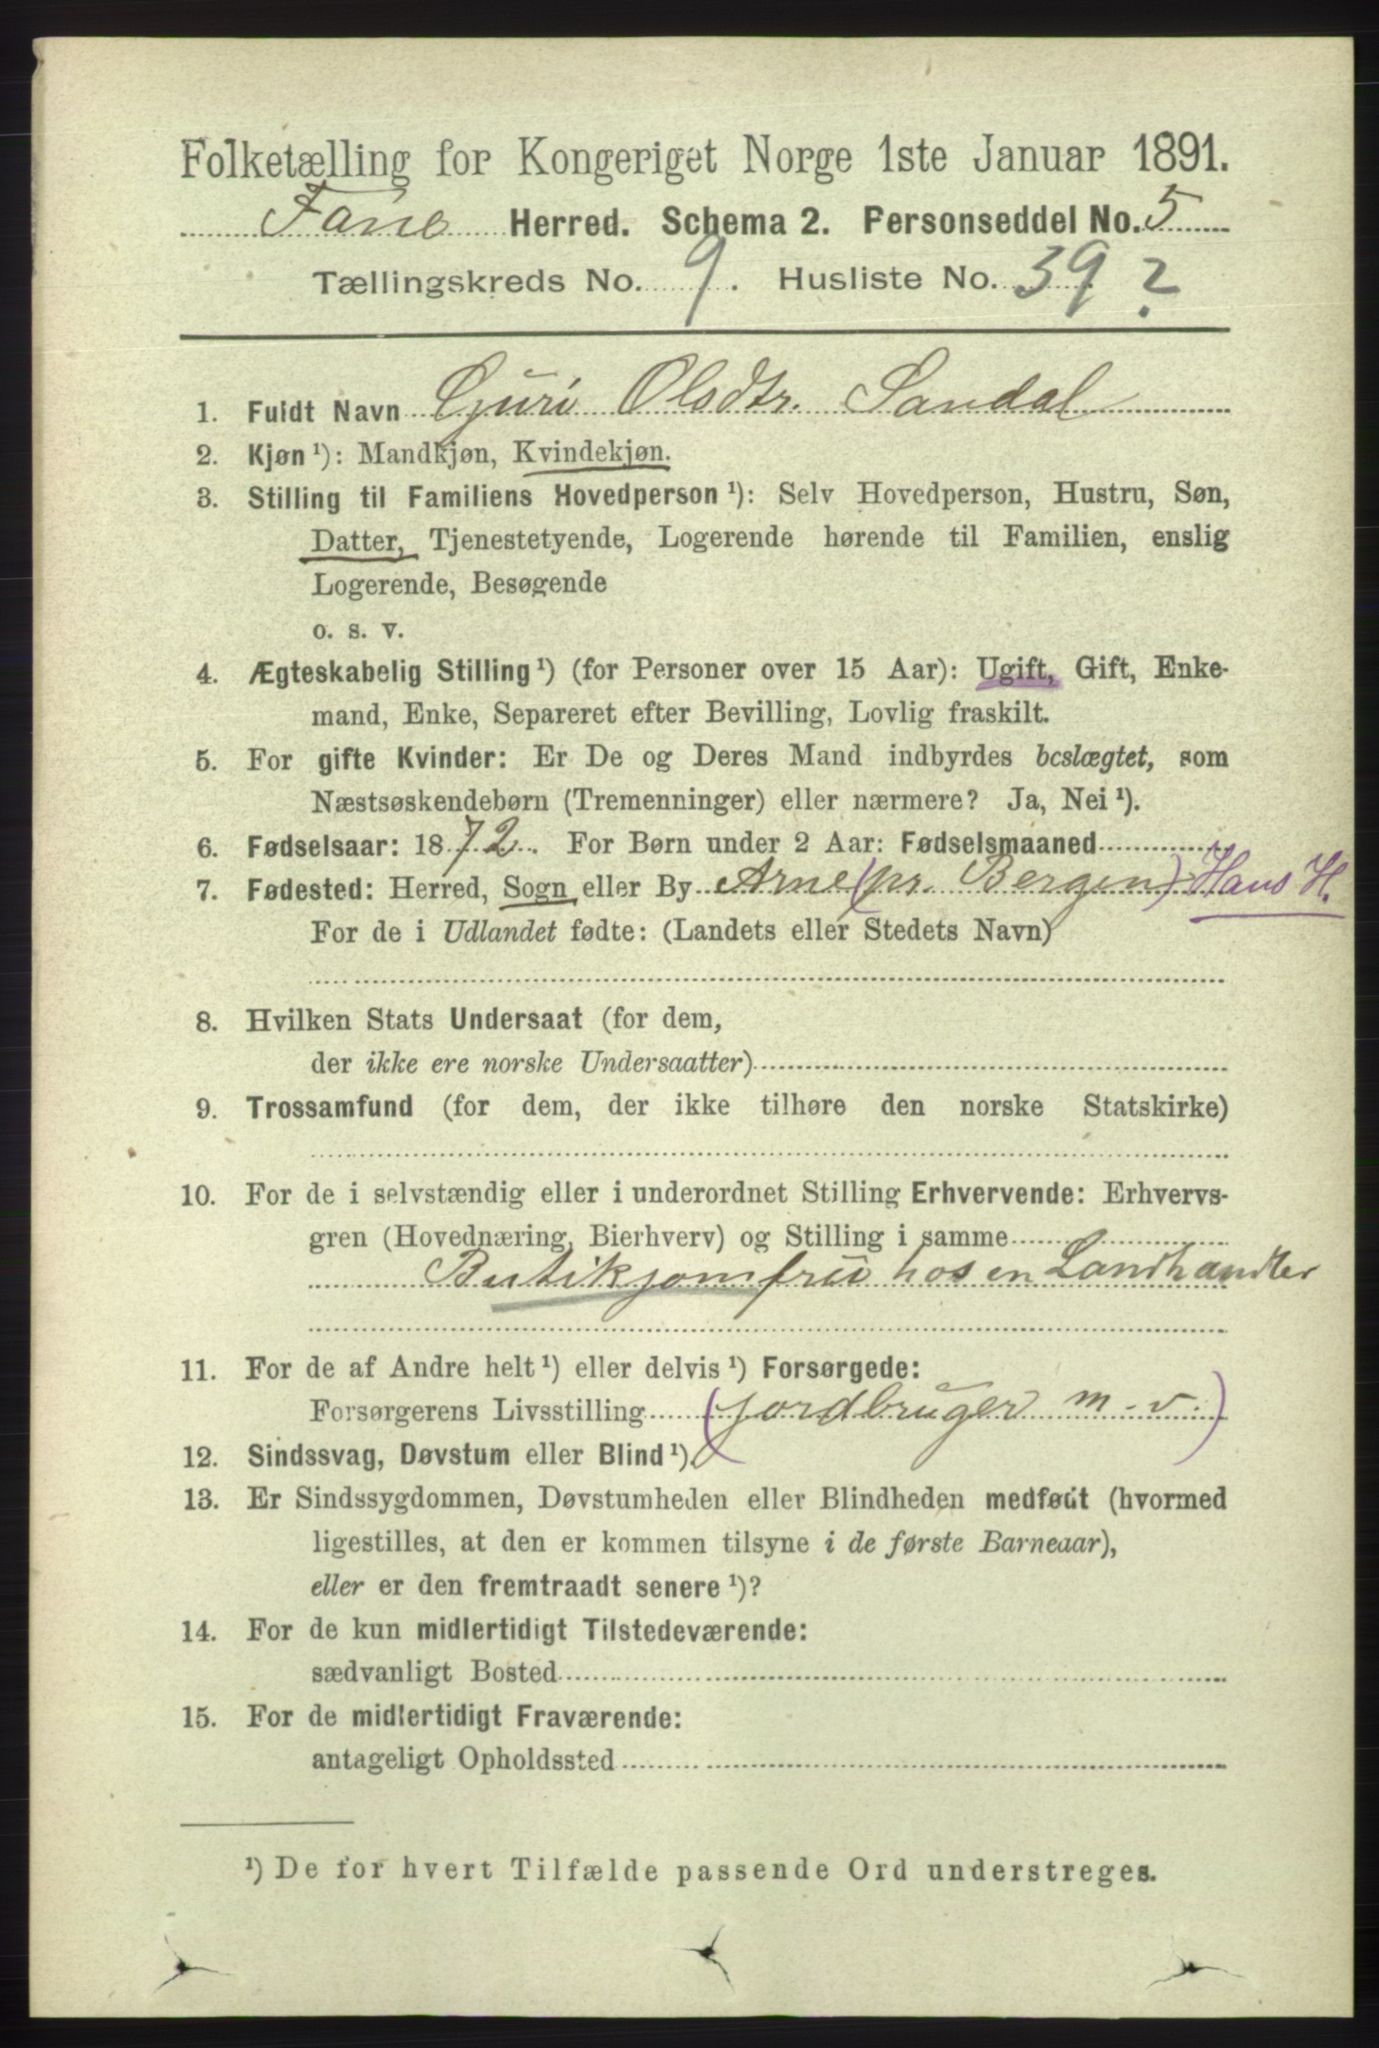 Folketælling for Kongeriget Norge 1ste Januar 1891.
Fane Herred. Schema 2. Personseddel No. 5
Tællingskreds No. 9. Husliste No. 39 ?
1. Fuldt Navn Guri Olsdtr. Sandal
2. Kjøn ¹): Mandkjøn, Kvindekjøn.
3. Stilling til Familiens Hovedperson ¹): Selv Hovedperson, Hustru, Søn,
Datter, Tjenestetyende, Logerende hørende til Familien, enslig
Logerende, Besøgende
o. s. v.
4. Ægteskabelig Stilling ¹) (for Personer over 15 Aar): Ugift, Gift, Enke-
mand, Enke, Separeret efter Bevilling, Lovlig fraskilt.
5. For gifte Kvinder: Er De og Deres Mand indbyrdes beslægtet, som
Næstsøskendebørn (Tremenninger) eller nærmere? Ja, Nei ¹).
6. Fødselsaar: 1872. For Børn under 2 Aar: Fødselsmaaned
7. Fødested: Herred, Sogn eller By Arne (pr. Bergen) Haus H.
For de i Udlandet fødte: (Landets eller Stedets Navn)
8. Hvilken Stats Undersaat (for dem,
der ikke ere norske Undersaatter)
9. Trossamfund (for dem, der ikke tilhøre den norske Statskirke)
10. For de i selvstændig eller i underordnet Stilling Erhvervende: Erhvervs-
gren (Hovednæring, Bierhverv) og Stilling i samme
Butikjomfru hos en Landhandler
11. For de af Andre helt ¹) eller delvis ¹) Forsørgede:
Forsørgerens Livsstilling (jordbruger m. v.)
12. Sindssvag, Døvstum eller Blind ¹).
13. Er Sindssygdommen, Døvstumheden eller Blindheden medfødt (hvormed
ligestilles, at den er kommen tilsyne i de første Barneaar),
eller er den fremtraadt senere ¹)?
14. For de kun midlertidigt Tilstedeværende:
sædvanligt Bosted
15. For de midlertidigt Fraværende:
antageligt Opholdssted
¹) De for hvert Tilfælde passende Ord understreges.